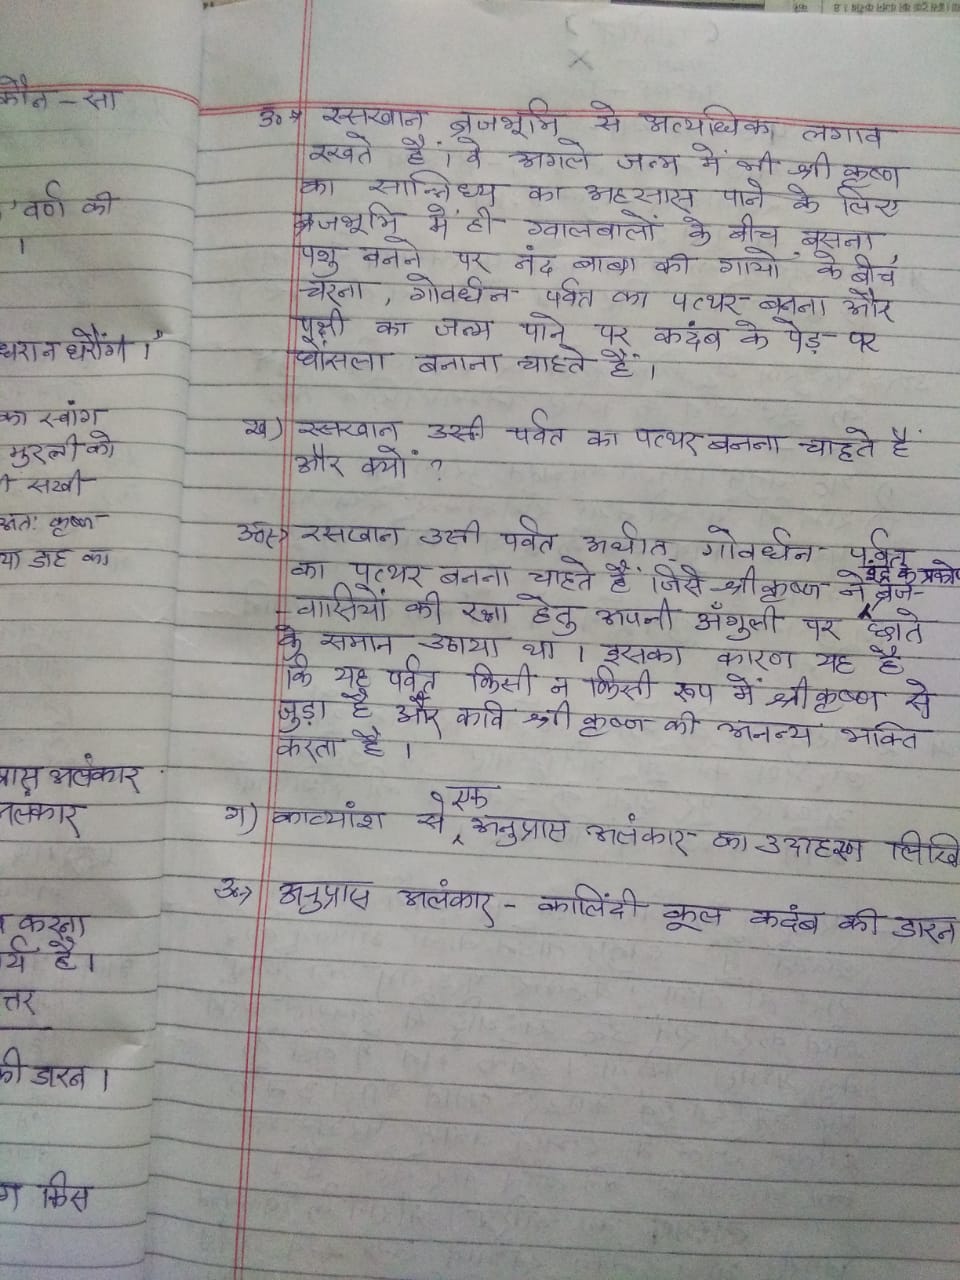 कौन - सा
वर्ण की
।
धरा न धरौंगी ।"
का स्वांग
मुरली को
सखी
अतः कृष्ण
या डाह का
अलंकार
करना
है।
की डारन ।
किस
उ०→ रसखान ब्रजभूमि से अत्यधिक लगाव
रखते हैं। वे अगले जन्म में भी श्री कृष्ण
का सान्निध्य का अहसास पाने के लिए
ब्रजभूमि में ही ग्वालबालों के बीच बसना,
पशु बनने पर नंद बाबा की गायों के बीच
चरना, गोवर्धन पर्वत का पत्थर बनना और
पक्षी का जन्म पाने पर कदंब के पेड़ पर
घोंसला बनाना चाहते हैं।
ख) रसखान उसी पर्वत का पत्थर बनना चाहते हैं
और क्यों ?
उ०→ रसखान उसी पर्वत अर्थात गोवर्धन पर्वत
का पत्थर बनना चाहते हैं जिसे श्री कृष्ण ने इंद्र के प्रकोप ब्रज-
- वासियों की रक्षा हेतु अपनी अँगुली पर छाते
के समान उठाया था। इसका कारण यह है
कि यह पर्वत किसी न किसी रूप में श्री कृष्ण से
जुड़ा है और कवि श्री कृष्ण की अनन्य भक्ति
करता है।
ग) काव्यांश से एक अनुप्रास अलंकार का उदाहरण
उ०→ अनुप्रास अलंकार - कालिंदी कूल कदंब की डारन